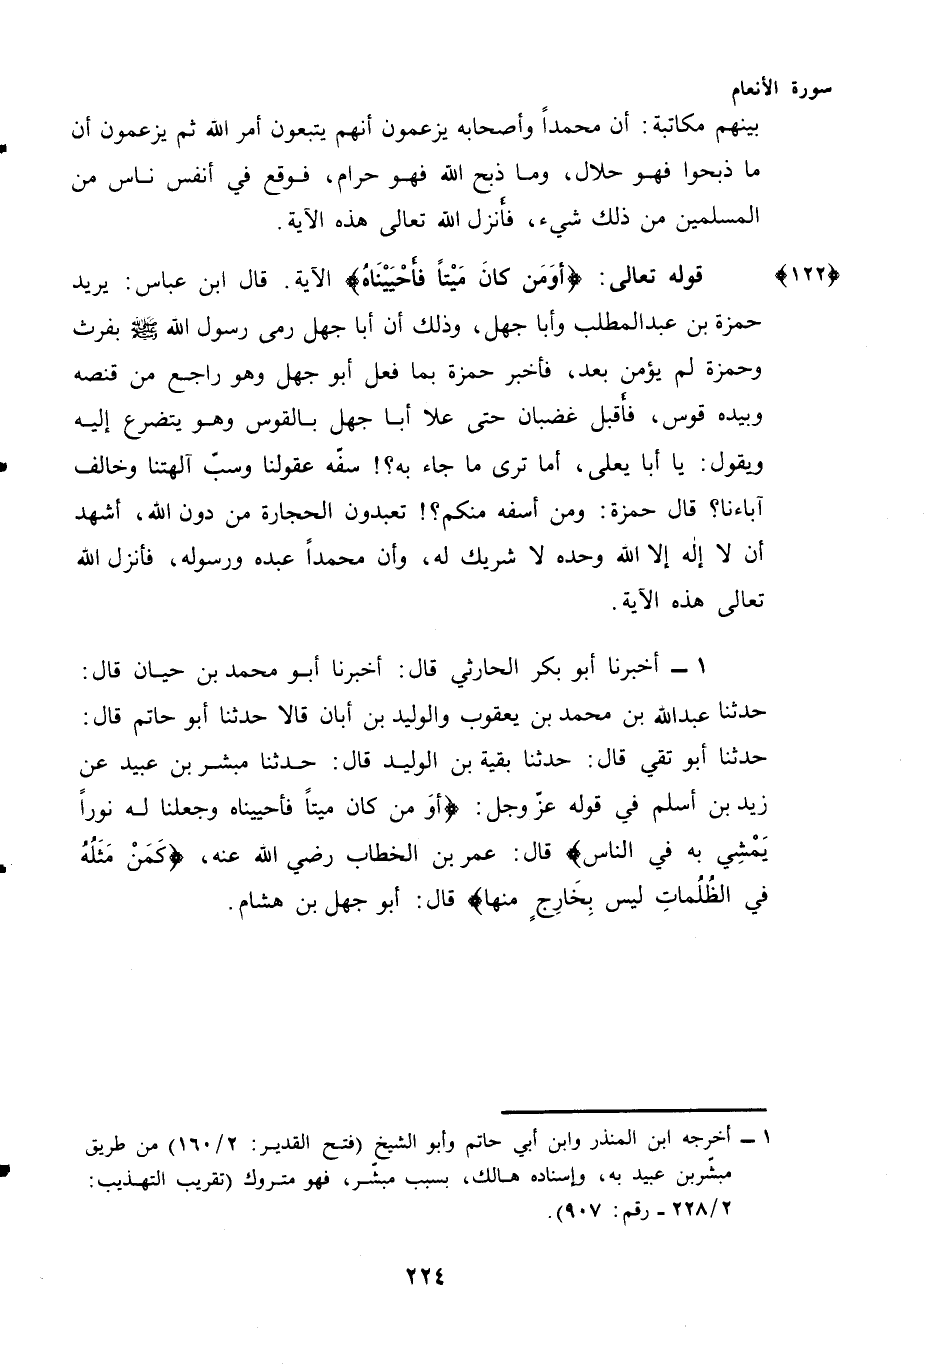 سورة الأنعام
بينهم مكاتبة: أن محمداً وأصحابه يزعمون أنهم يتبعون أمر الله ثم يزعمون أن
ما ذبحوا فهو حلال، وما ذبح الله فهو حرام، فوقع في أنفس ناس من
المسلمين من ذلك شيء، فأنزل الله تعالى هذه الآية.
﴿١٢٢﴾ قوله تعالى: ﴿أَوَمَن كانَ مَيْتاً فأَحْيَيْنَاهُ﴾ الآية. قال ابن عباس: يريد
حمزة بن عبدالمطلب وأبا جهل، وذلك أن أبا جهل رمى رسول الله ﷺ بفرث
وحمزة لم يؤمن بعد، فأخبر حمزة بما فعل أبو جهل وهو راجع من قنصه
وبيده قوس، فأقبل غضبان حتى علا أبا جهل بالقوس وهو يتضرع إليه
ويقول: يا أبا يعلى، أما ترى ما جاء به؟! سفّه عقولنا وسبّ آلهتنا وخالف
آباءنا؟ قال حمزة: ومن أسفه منكم؟! تعبدون الحجارة من دون الله، أشهد
أن لا إلٰه إلا الله وحده لا شريك له، وأن محمداً عبده ورسوله، فأنزل الله
تعالى هذه الآية.
١ ـ أخبرنا أبو بكر الحارثي قال: أخبرنا أبو محمد بن حيان قال:
حدثنا عبدالله بن محمد بن يعقوب والوليد بن أبان قالا حدثنا أبو حاتم قال:
حدثنا أبو تقي قال: حدثنا بقية بن الوليد قال: حدثنا مبشر بن عبيد عن
زيد بن أسلم في قوله عزّ وجل: ﴿أوَ من كان ميتاً فأحييناه وجعلنا له نوراً
يَمْشِي به في الناس﴾ قال: عمر بن الخطاب رضي الله عنه، ﴿كَمَنْ مَثَلُهُ
في الظُلُماتِ ليس بِخَارِجٍ منها﴾ قال: أبو جهل بن هشام.
١ ـ أخرجه ابن المنذر وابن أبي حاتم وأبو الشيخ (فتح القدير: ١٦٠/٢) من طريق
مبشّربن عبيد به، وإسناده هالك، بسبب مبشّر، فهو متروك (تقريب التهذيب:
٢٢٨/٢ ـ رقم: ٩٠٧).
٢٢٤